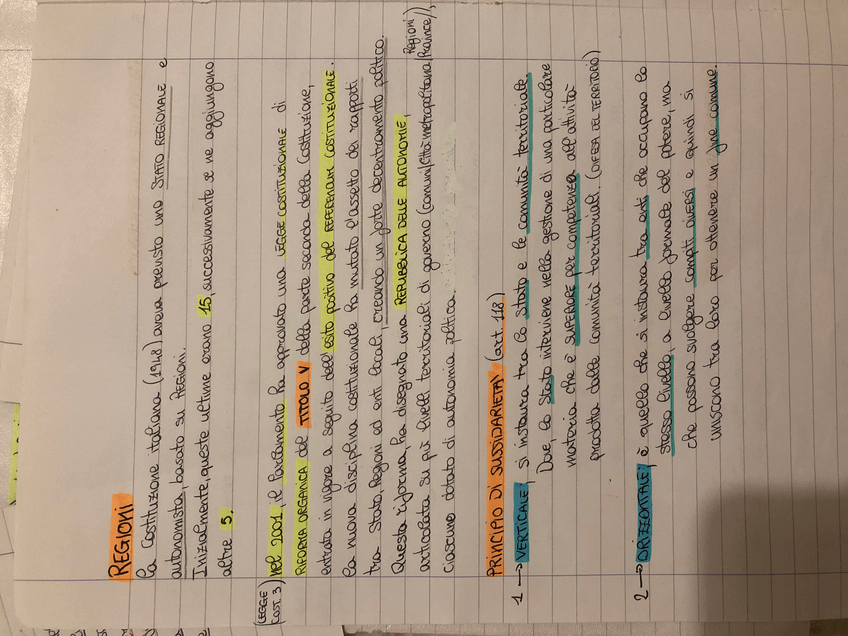 REGIONI
la Costituzione italiana (1948) aveva previsto uno STATO REGIONALE e
autonomista, basato su REGIONI.
Inizialmente, queste ultime erano 15, successivamente se ne aggiungono
altre 5.
(LEGGE COST. 3) nel 2001, il Parlamento ha approvato una LEGGE COSTITUZIONALE di
RIFORMA ORGANICA del TITOLO V della parte seconda della Costituzione,
entrata in vigore a seguito dell'esito positivo del REFERENDUM COSTITUZIONALE.
la nuova disciplina costituzionale ha mutato l'assetto dei rapporti
tra Stato, Regioni ed enti locali, creando un forte decentramento politico.
Questa riforma, ha disegnato una REPUBBLICA DELLE AUTONOMIE,
Regioni
articolata su più livelli territoriali di governo (comuni/Città metropolitana/Province//),
ciascuno dotato di autonomia politica.
PRINCIPIO DI SUSSIDARIETA' (art. 118)
1 → VERTICALE, si instaura tra lo Stato e le comunità territoriale.
Dove, lo Stato interviene nella gestione di una particolare
materia che è SUPERIORE per competenza all'attività
prodotta dalle comunità territoriali. (DIFESA DEL TERRITORIO)
2 → ORIZZONTALE, è quello che si instaura tra enti che occupano lo
stesso livello, a livello formale del potere, ma
che possono svolgere compiti DIVERSI e quindi si
uniscono tra loro per ottenere un fine comune.